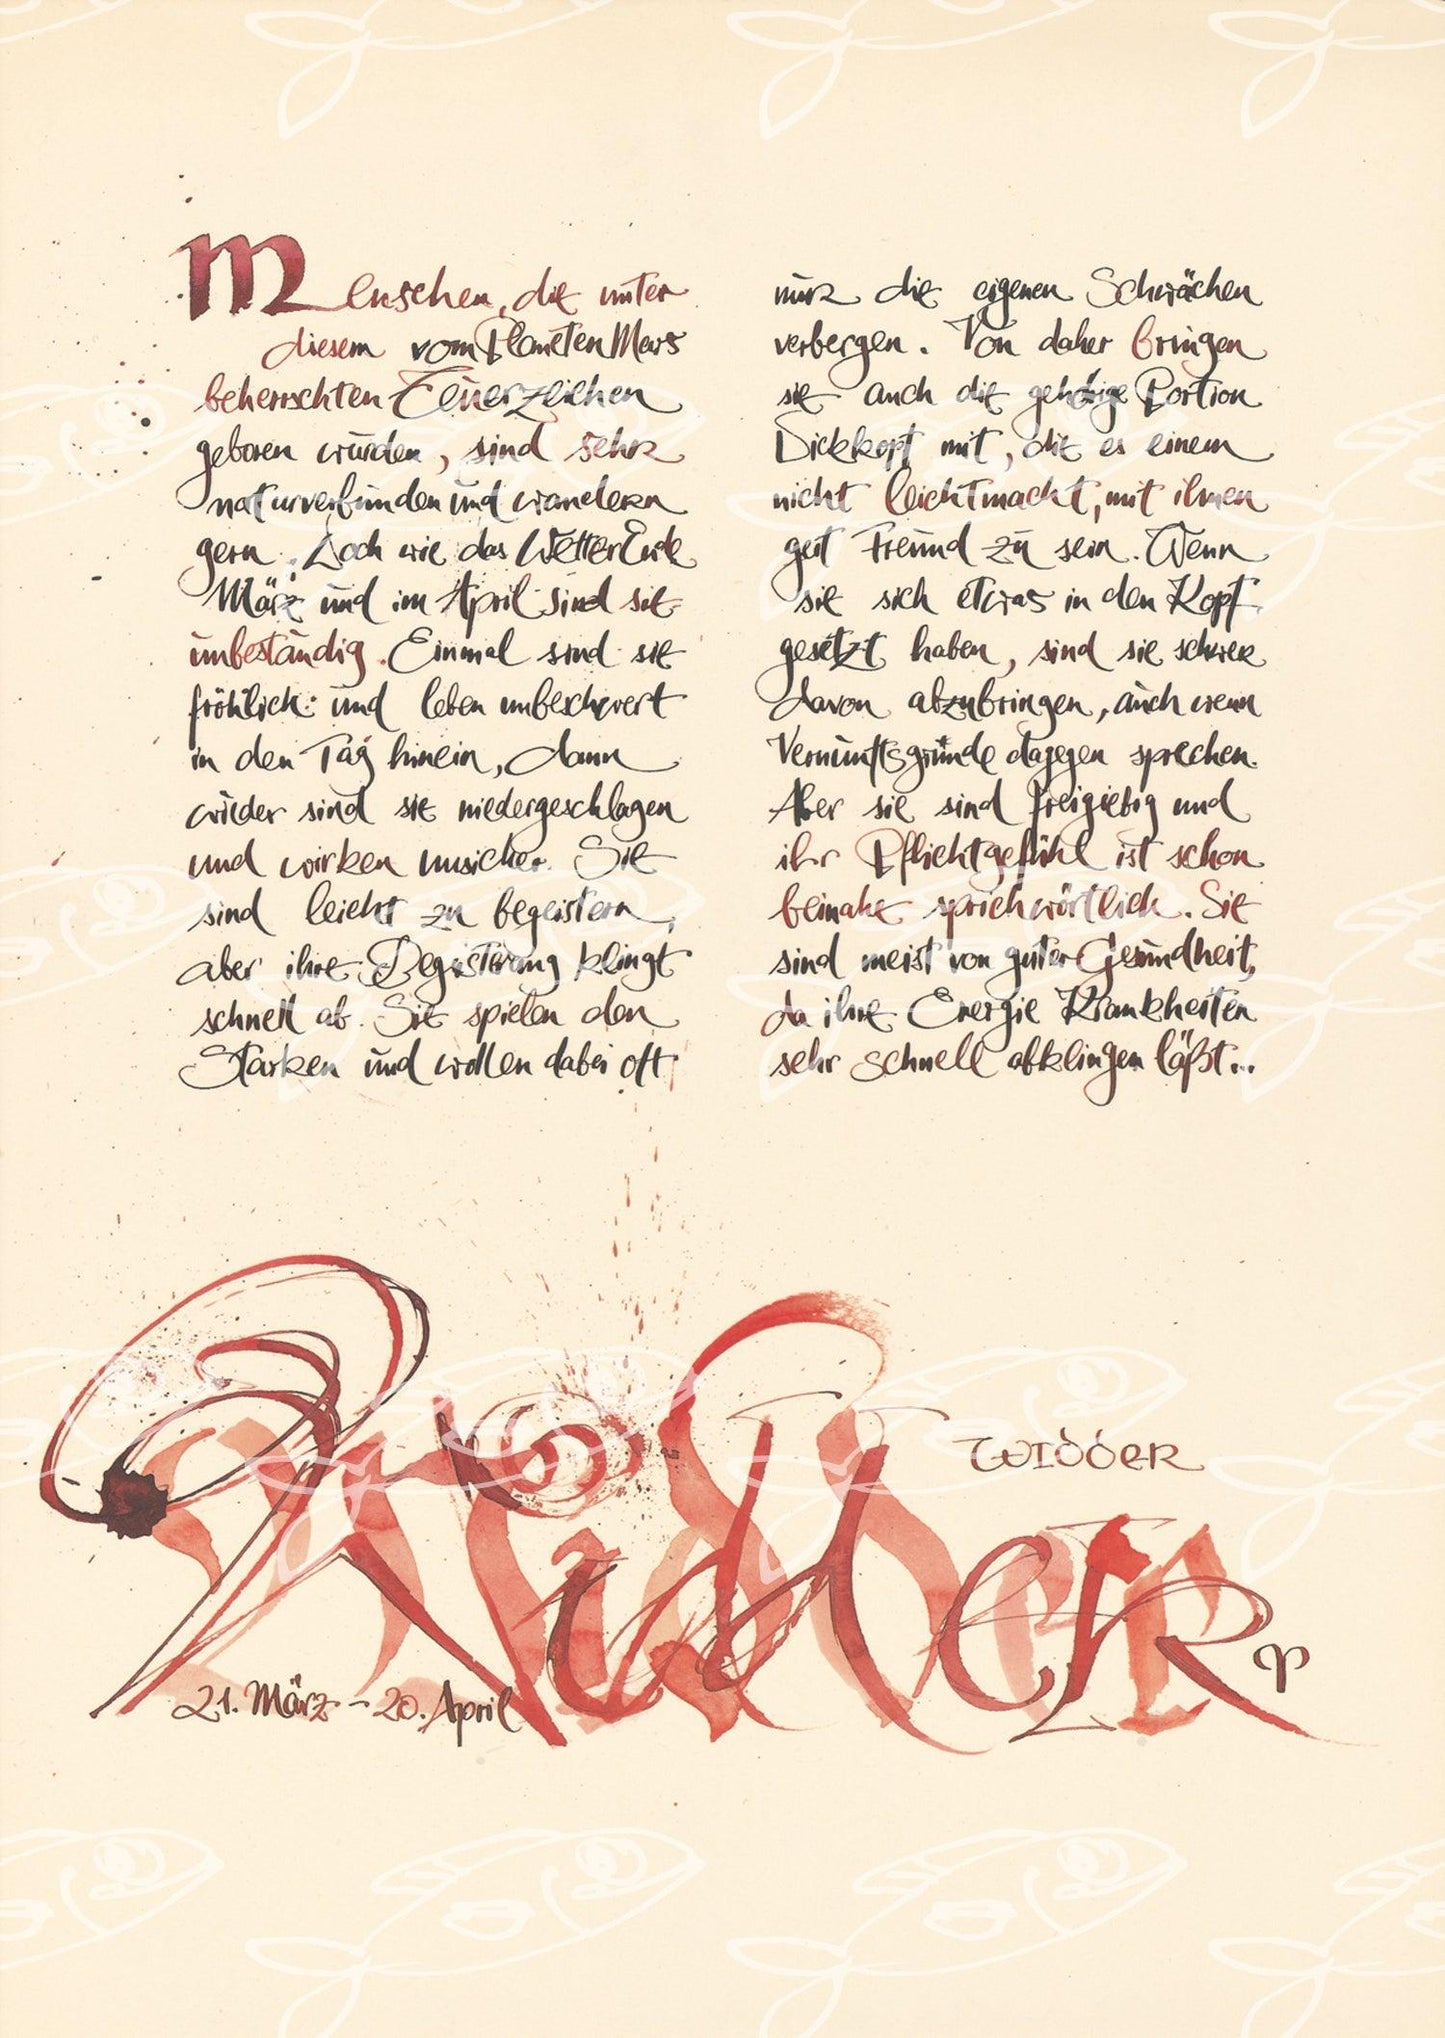 Menschen, die unter
diesem vom Planeten Mars
beherrschten Feuerzeichen
geboren wurden, sind sehr
naturverbunden und wandern
gern. Doch wie das Wetter Ende
März und im April sind sie
unbeständig. Einmal sind sie
fröhlich und leben unbeschwert
in den Tag hinein, dann
wieder sind sie niedergeschlagen
und wirken unsicher. Sie
sind leicht zu begeistern,
aber ihre Begeisterung klingt
schnell ab. Sie spielen den
Starken und wollen dabei oft
nur die eigenen Schwächen
verbergen. Von daher bringen
sie auch die gehörige Portion
Dickkopf mit, die es einem
nicht leicht macht, mit ihnen
gut Freund zu sein. Wenn
sie sich etwas in den Kopf
gesetzt haben, sind sie schwer
davon abzubringen, auch wenn
Vernunftsgründe dagegen sprechen.
Aber sie sind freigiebig und
ihr Pflichtgefühl ist schon
beinahe sprichwörtlich. Sie
sind meist von guter Gesundheit,
da ihre Energie Krankheiten
sehr schnell abklingen läßt...
Widder
Widder ♈
21. März - 20. April